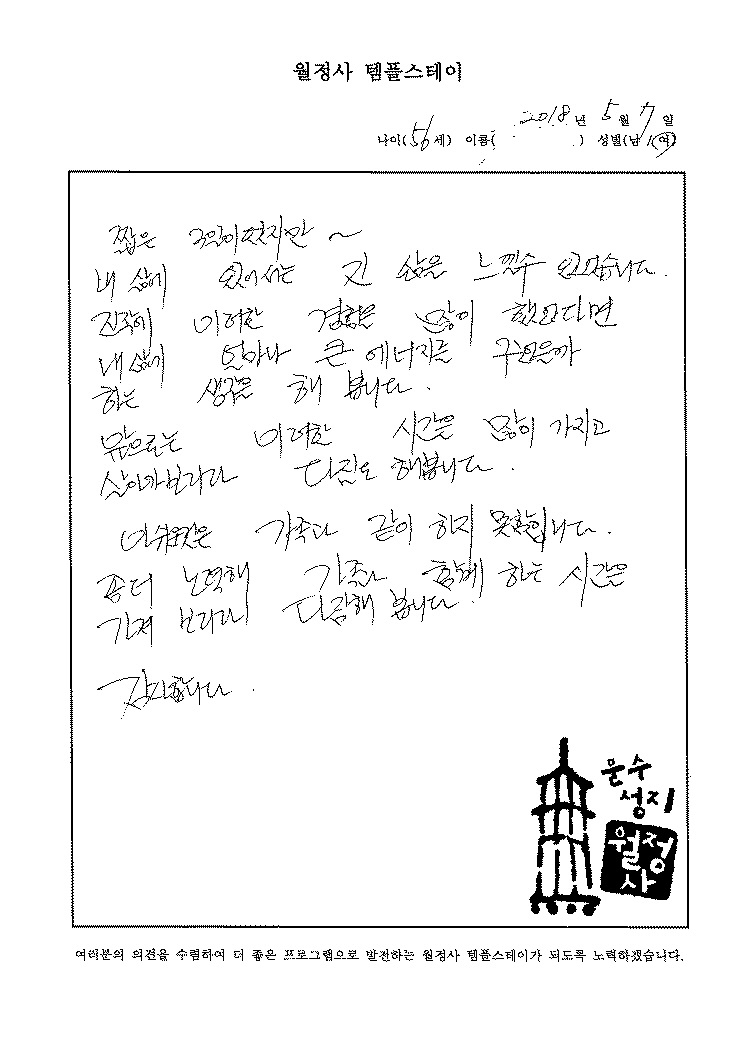 월정사 템플스테이
2018년 5월 7일
나이(56세) 이름( ) 성별(남/여)
짧은 3일이었지만 ~
내 삶에 있어서는 긴 삶을 느낄수 있었습니다.
진작에 이러한 경험을 많이 했었다면
내삶에 얼마나 큰 에너지를
하는 생각을 해 봅니다.
앞으로는 이러한 시간을 많이 가지고
살아가보리라 다짐도 해봅니다.
아쉬운것은 가족과 같이 하지 못함입니다.
좀더 노력해 가족과 함께 하는 시간을
가져 보리라 다짐해 봅니다.
감사합니다.
문수
성지
월정
사
여러분의 의견을 수렴하여 더 좋은 프로그램으로 발전하는 월정사 템플스테이가 되도록 노력하겠습니다.